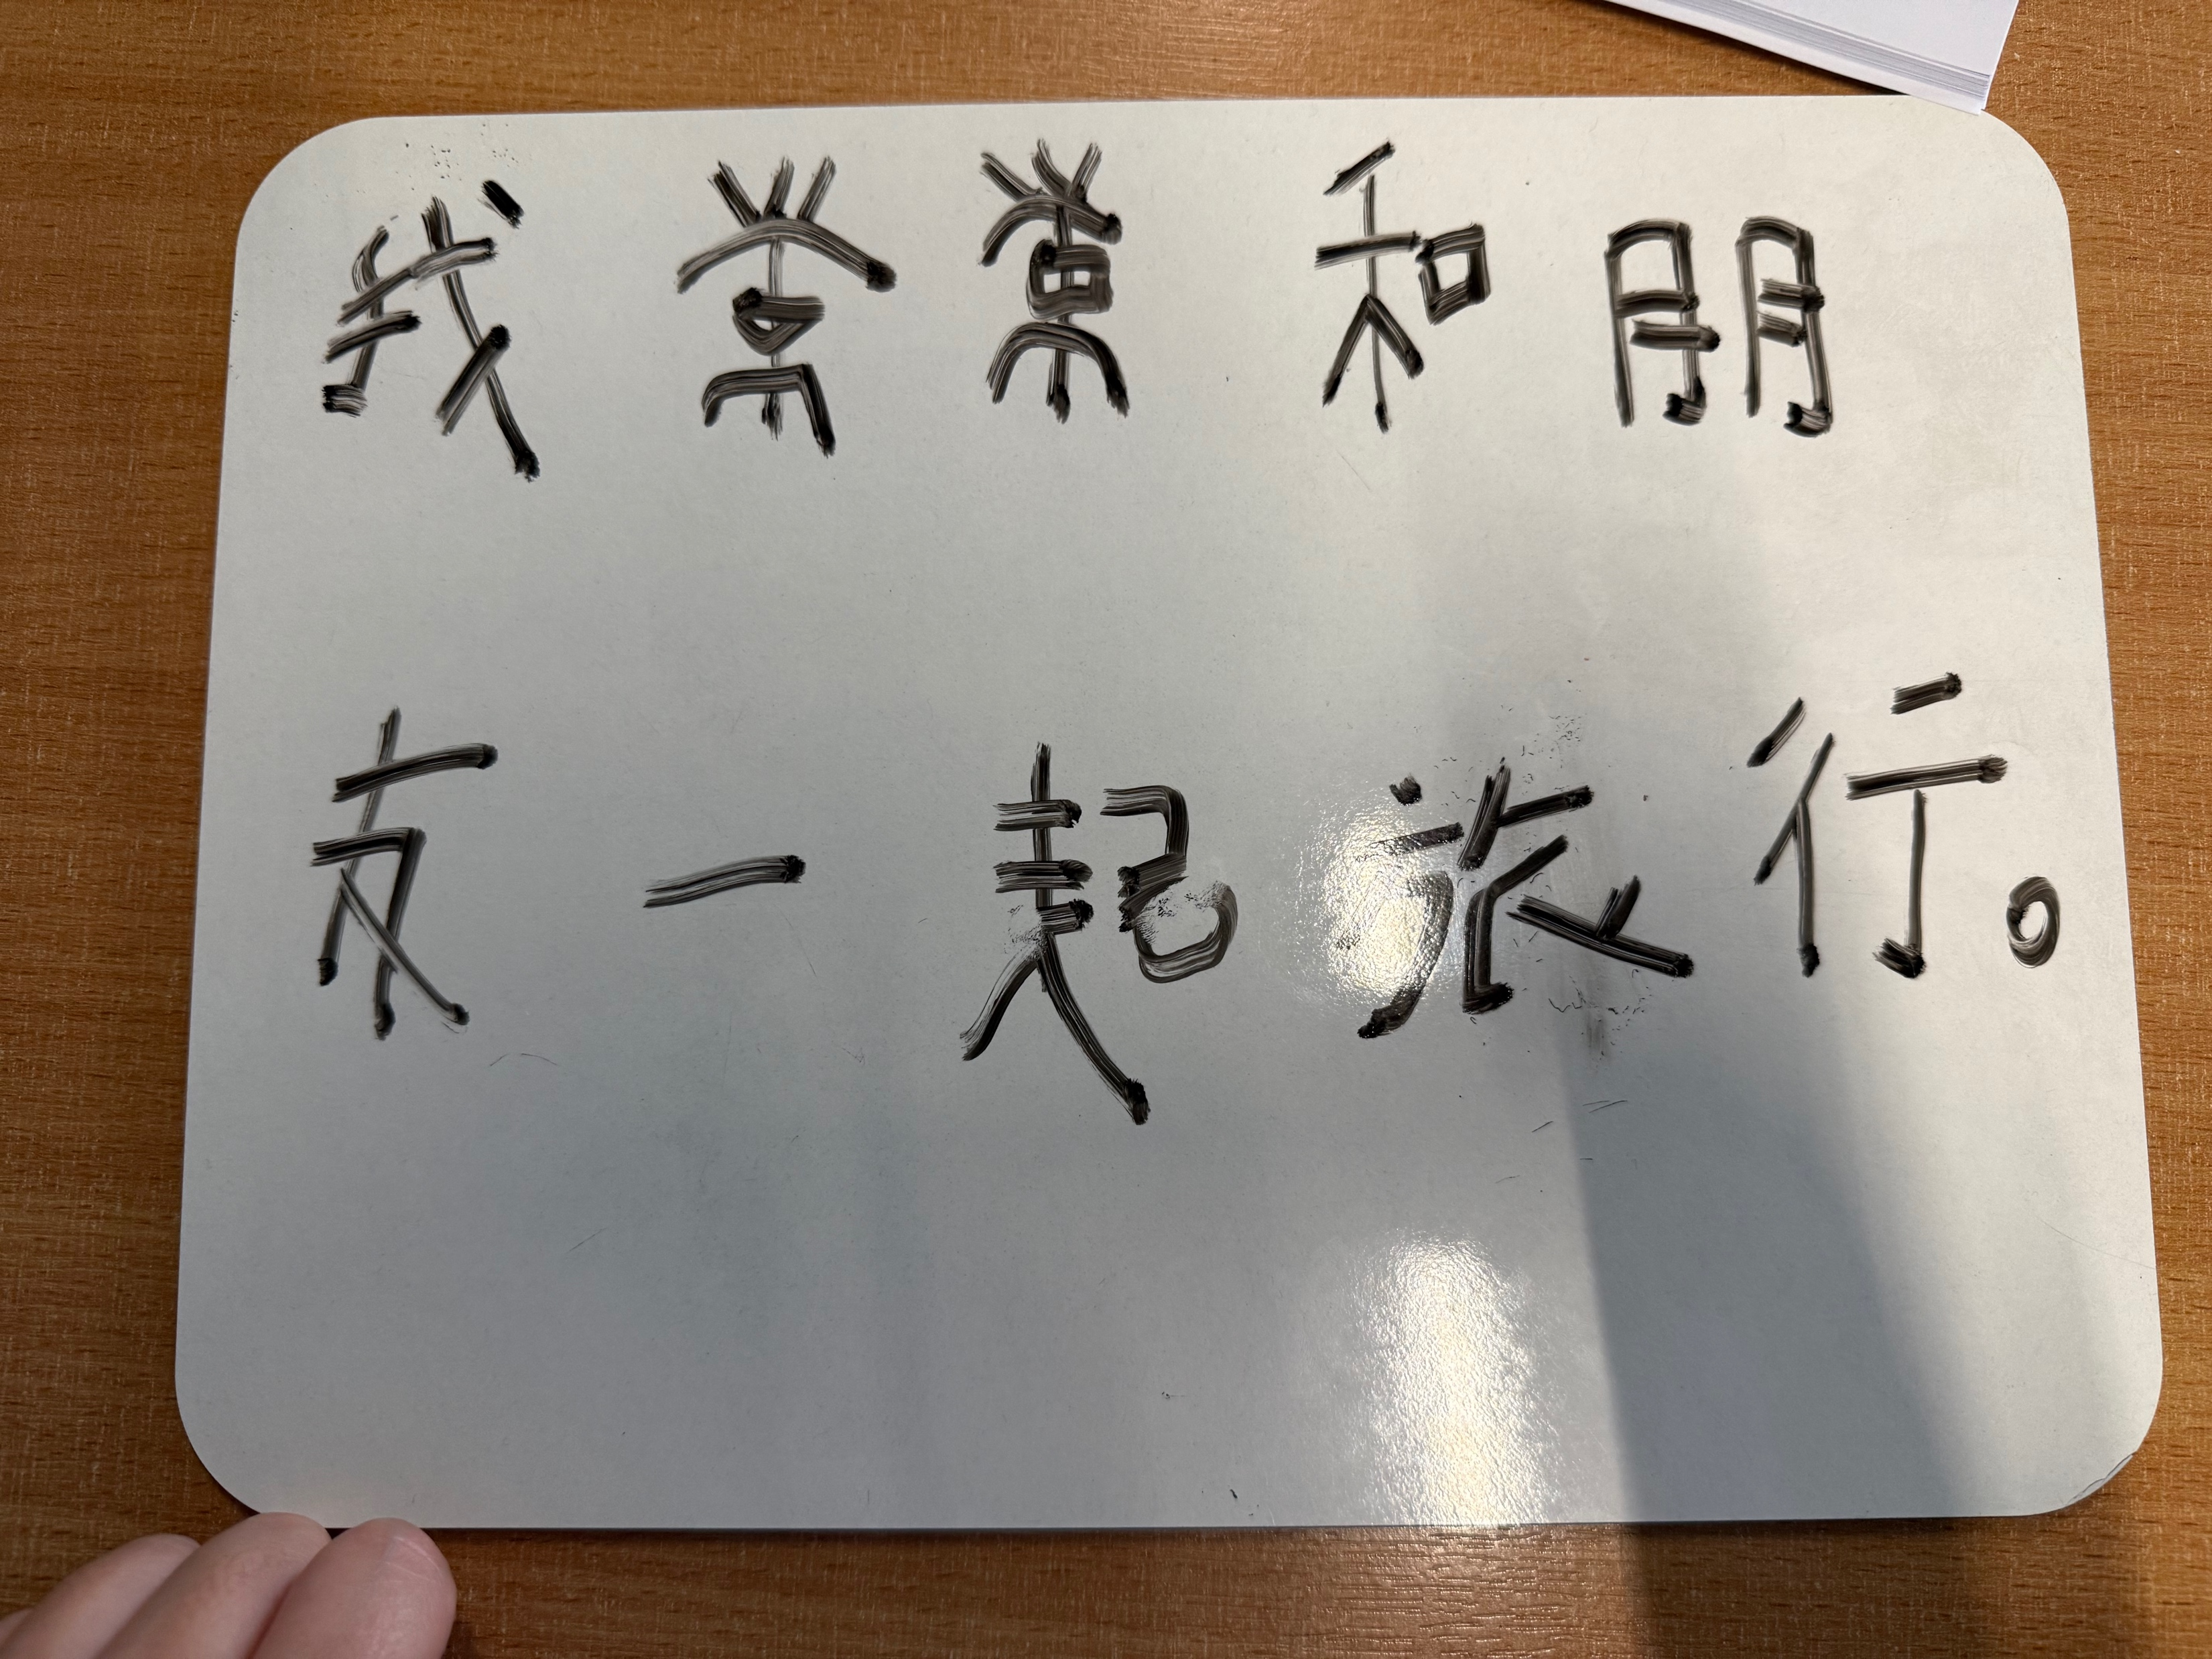 我常常和朋
友一起旅行。